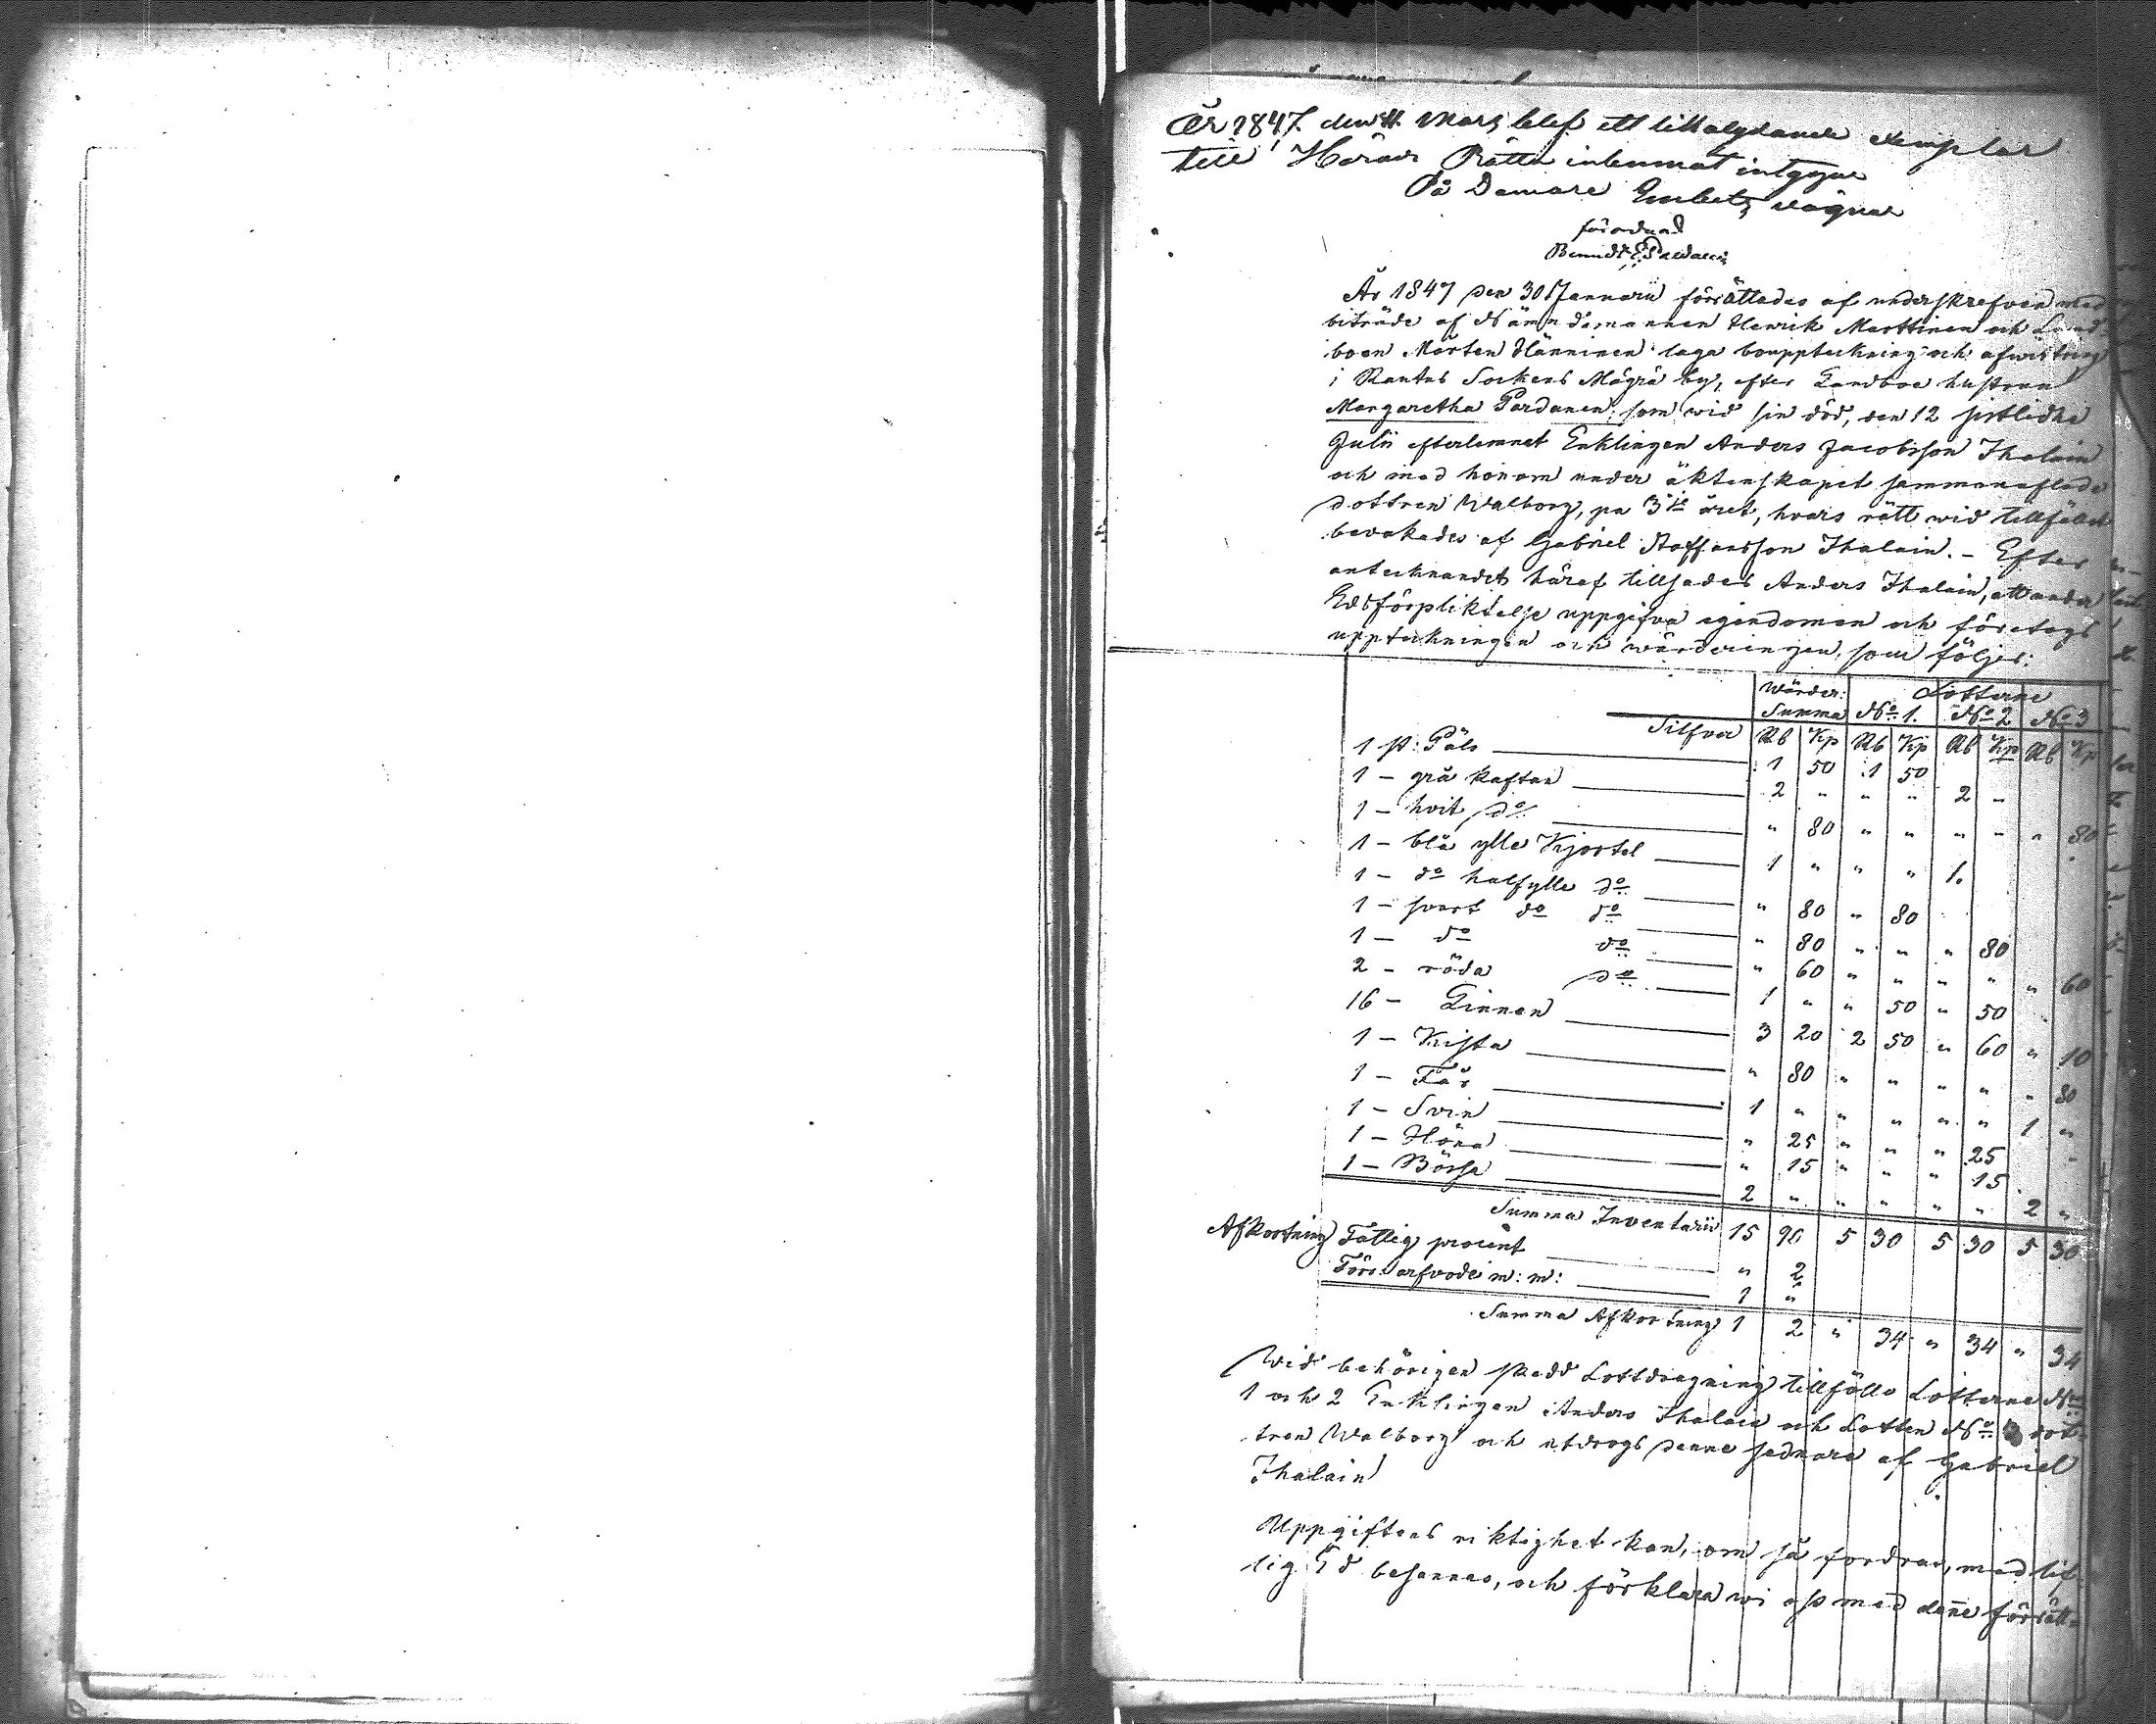 År 1847. den 11. Mars blef ett lika lydande exemplar
till Härads Rätten inlemnat intygar
På Domare Embets vägnar
förordnad
År 1847 den 30 Januarii förrättades af underskrefven med
biträde af Nämndemannen Henrik Marttinen och Land-
boen Mårten Hänninen laga bouppteckning och afvittring
i Rautus Sockens Mägrä by, efter Landboe hustrun
Margaretha Pardanen, som wid sin död, den 12 sistledne
Julii efterlemnat Enklingen Anders Jacobsson Ihalain
och med honom under äktenskapet sammanaflade
dottren Walborg, på 3die året, hvars rätt wid tillfället
bevakades af Gabriel Staffansson Ihalain. - Efter
antecknandet häraf tillsades Anders Ihalain, att under
Edsförpliktelse uppgifva egendomen och företogs
uppteckningen och wärderingen, som följer:
Wärder: Lotterne
Summa No 1. No 2 No 3
Silfver Rb Kp Rb Kp Rb Kp Rb Kp
1 st: Päls 1 50 1 50
1 - grå kaftan 2 " " " 2 "
1 - hvit do " 80 " " " " " 80
1 - blå ylle Kjortel 1 " " " 1.
1 - do halfylle do " 80 " 80
1 - svart do do " 80 " " " 80
1 - do do " 60 " " " " " 60
2 - röda do 1 " " 50 " 50
16 - Linnen 3 20 2 50 " 60 " 10
1 - Kista " 80 " " " " " 80
1 - Får 1 " " " " " 1 "
1 - Svin " 25 " " " 25 "
1 - Höna " 15 " " " 15
1 - Börsa 2 " " " " " 2 "
Summa Inventarii 15 90 5 30 5 30 5 30
Afkortning Fattig procent " 2
Förr: arfvode m: m: 1 "
Summa Afkortning 1 2 " 34 " 34 " 34
Wid behörigen skedd Lottdragning tillföllo Lotterne No
1 och 2 Enklingen Anders Ihalain och Lotten No 3 dot-
tren Walborg och utdrogs denne sednare af Gabriel
Ihalain
Uppgiftens riktighet kan, om så fordras, med lif-
lig Ed besannas, och förklara wi oss med denne förrätt-